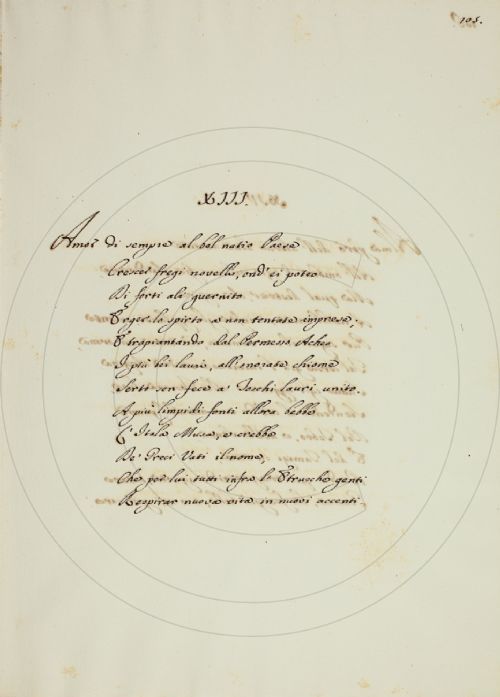 105.
XIII.
Amor di sempre al bel natio Paese
Crescer fregi novelli, ond' ei poteo
Di forti ali guernito
Erger lo spirto a non tentate imprese;
E trapiantando dal Permesso Acheo
I più bei lauri, all' onorate chiome
Serti sen fece a Toschi lauri unito.
A più limpidi fonti allora bebbe
L' Itala Musa, e crebbe
De' Greci Vati il nome,
Che per lui tutti infra le Etrusche genti
Respirar nuova vita in nuovi accenti.